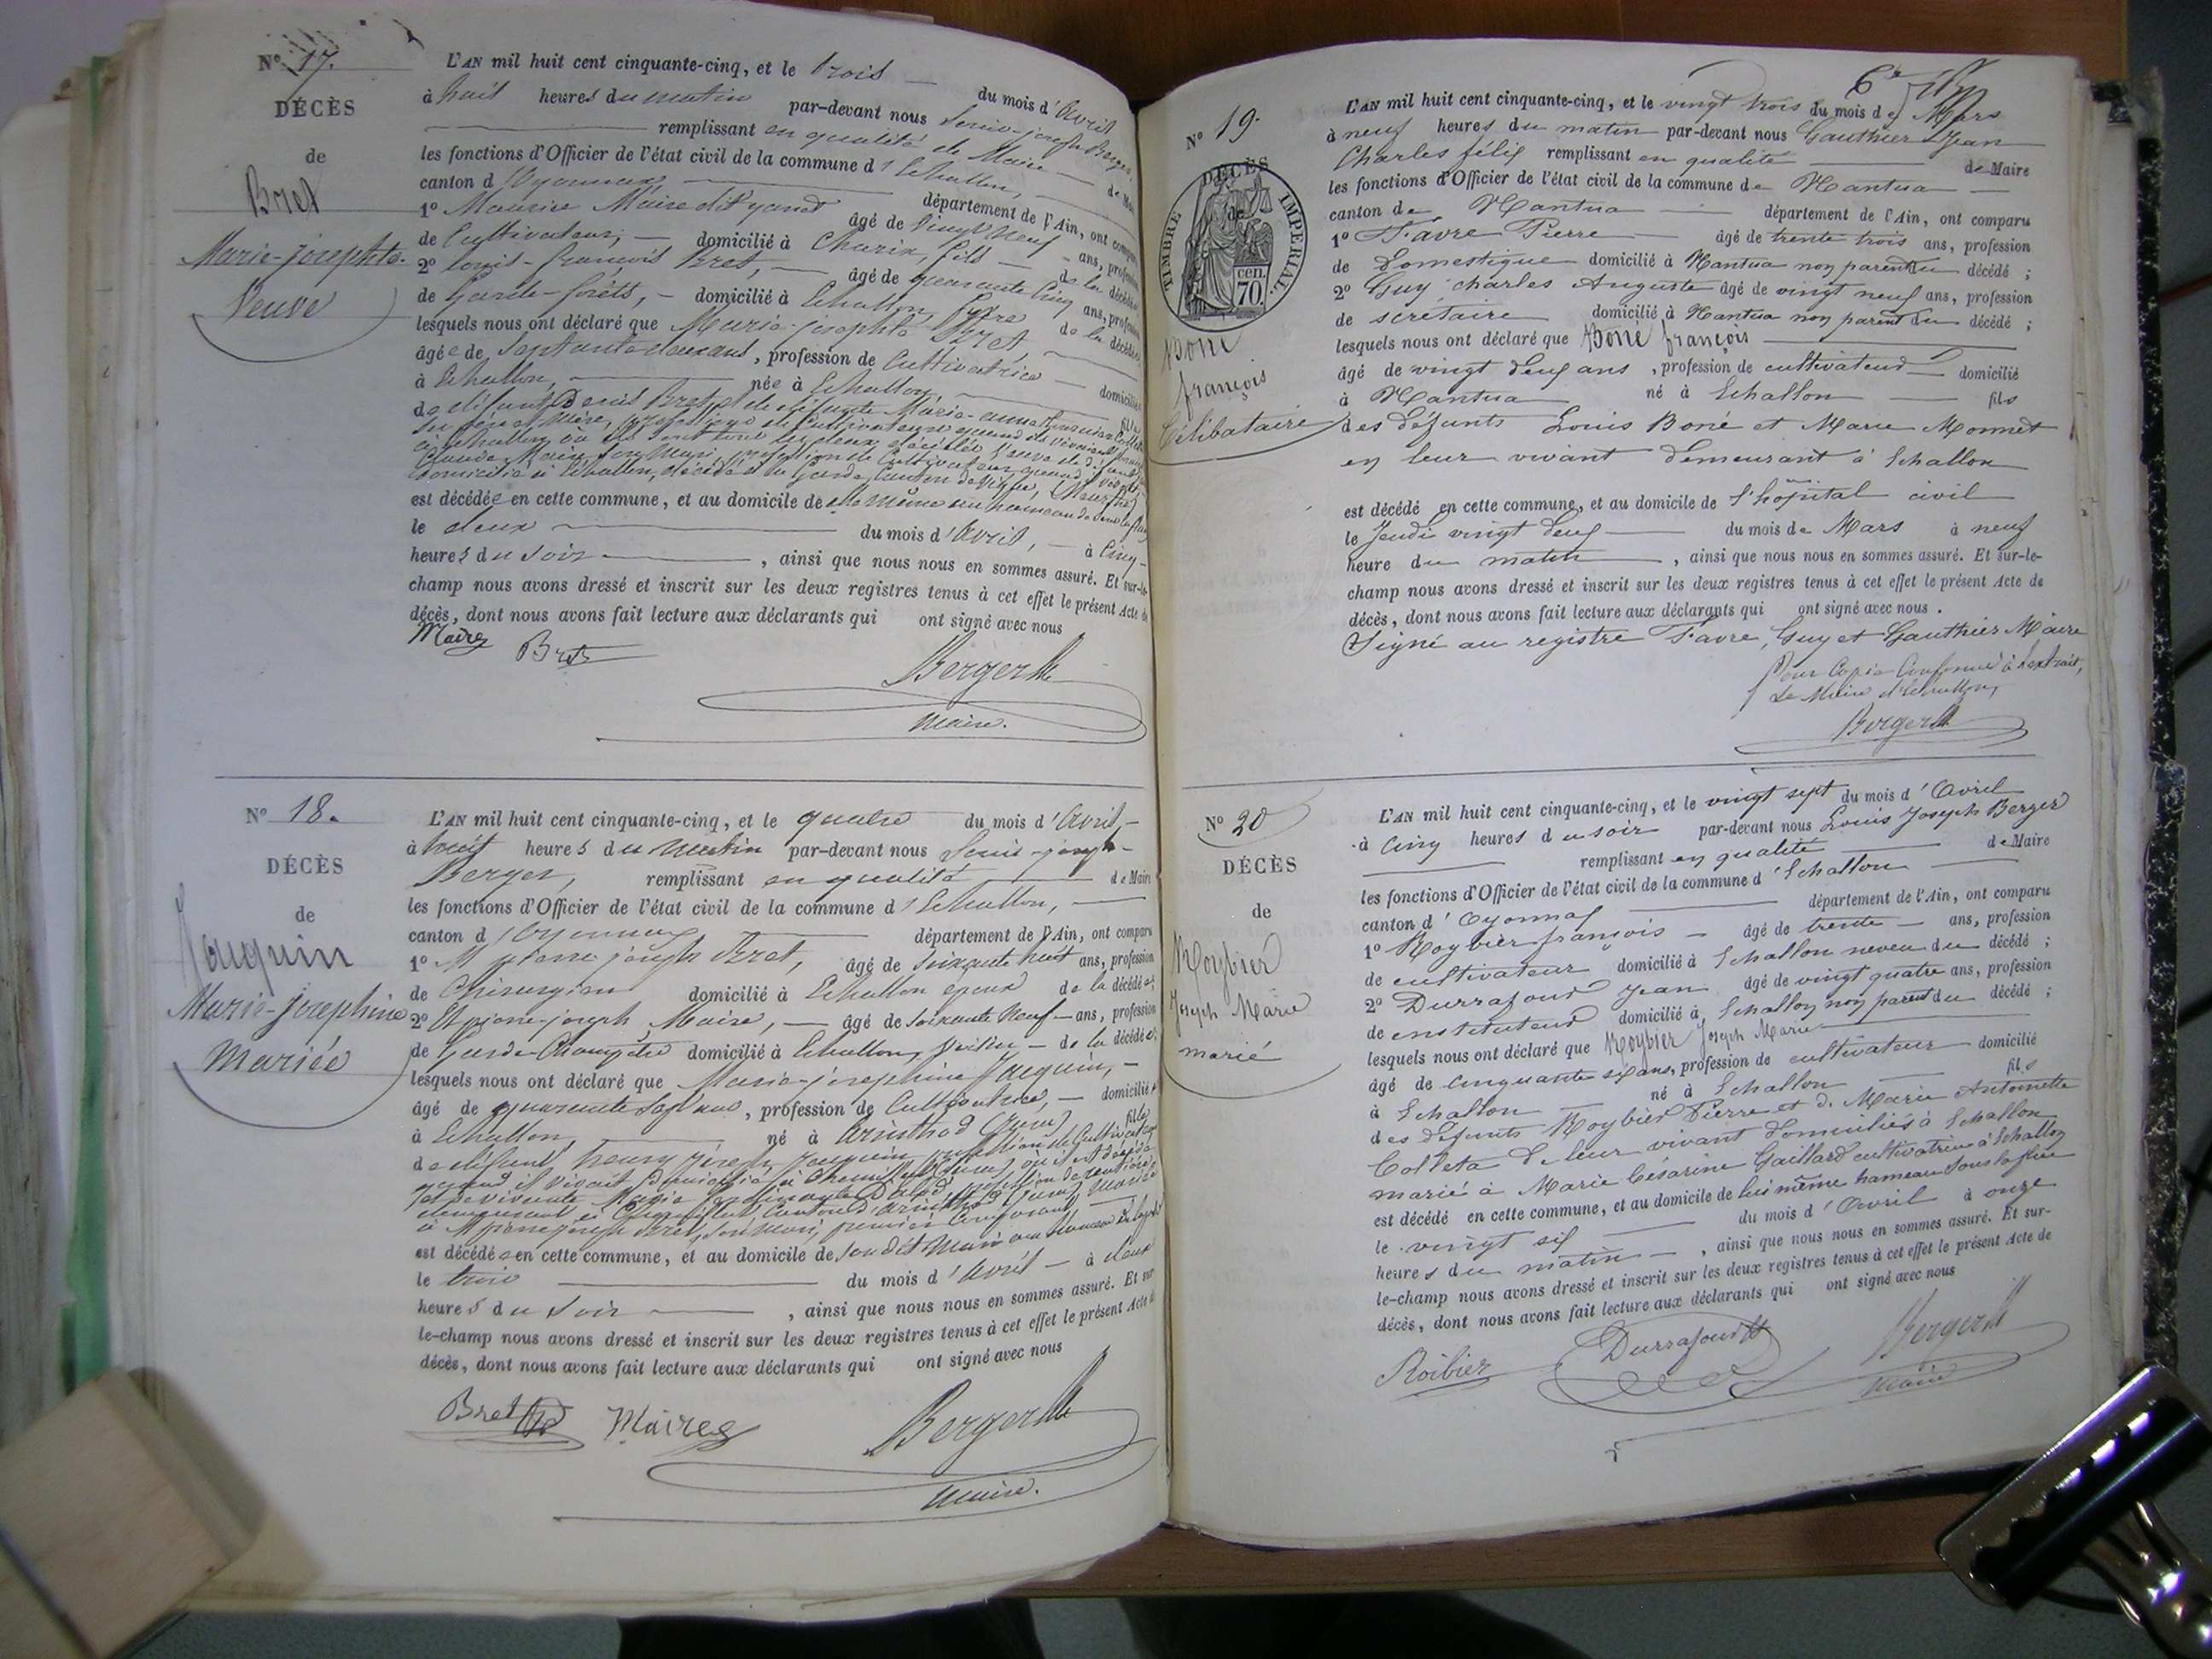 N° 17.
DÉCÈS
de
Bret
Marie-josephte
Veuve
L'AN mil huit cent cinquante-cinq, et le trois du mois d'Avril
à huit heures du matin par-devant nous Louis-joseph Berger,
remplissant en qualité de Maire
les fonctions d'Officier de l'état civil de la commune d'Echallon,
canton d'Oyonnax département de l'Ain, ont
1° Maurice Maire dit âgé de vingt neuf ans,
de Cultivateur, domicilié à Charix, fils de la décédée
2° louis-françois Bret, âgé de quarante cinq ans,
de Garde-forêts, domicilié à Echallon, frère de la
lesquels nous ont déclaré que Marie-josephte Bret,
âgée de septante deux ans, profession de Cultivatrice
à Echallon, née à Echallon,
de défunt Denis Bret et de défunte Marie-anne
où ils sont tous les deux décédés Veuve de
est décédée en cette commune, et au domicile de elle même au hameau de
le deux du mois d'Avril, à cinq
heures du soir, ainsi que nous nous en sommes assuré. Et sur-le-
champ nous avons dressé et inscrit sur les deux registres tenus à cet effet le présent Acte de
décès, dont nous avons fait lecture aux déclarants qui ont signé avec nous
Maire Bret
Berger
Maire.
N° 18.
DÉCÈS
de
Jauquin
Marie-josephine
Mariée
L'AN mil huit cent cinquante-cinq, et le quatre du mois d'Avril,
à huit heures du Matin par-devant nous Louis-joseph
Berger, remplissant en qualité de Maire
les fonctions d'Officier de l'état civil de la commune d'Echallon,
canton d'Oyonnax département de l'Ain, ont comparu
1° M pierre joseph Bret, âgé de soixante huit ans, profession
de Chirurgien domicilié à Echallon époux de la décédée;
2° Et pierre-joseph Maire, âgé de soixante neuf ans, profession
de Garde Champêtre domicilié à Echallon, voisin de la décédée;
lesquels nous ont déclaré que Marie-josephine Jauquin,
âgé de quarante sept ans, profession de Cultivatrice, domicilié
à Echallon, né à Arinthod (Jura) fille
de défunt henry joseph Jauquin, profession de Cultivateur
quand il vivait domicilié à
à M pierre joseph Bret, son Mari, premier Comparant,
est décédée en cette commune, et au domicile de son dit Mari au hameau
le trois du mois d'Avril à deux
heures du soir, ainsi que nous nous en sommes assuré. Et sur-
le-champ nous avons dressé et inscrit sur les deux registres tenus à cet effet le présent Acte de
décès, dont nous avons fait lecture aux déclarants qui ont signé avec nous
Bret Maire Berger
Maire.
N° 19.
DÉCÈS
de
TIMBRE IMPERIAL.
cen.
70.
Boné
françois
Célibataire
L'AN mil huit cent cinquante-cinq, et le vingt trois du mois de Mars
à neuf heures du matin par-devant nous Gauthier Jean
Charles félix remplissant en qualité de Maire
les fonctions d'Officier de l'état civil de la commune de Nantua
canton de Nantua département de l'Ain, ont comparu
1° Favre Pierre âgé de trente trois ans, profession
de Domestique domicilié à Nantua non parent du décédé ;
2° Guy charles Auguste âgé de vingt neuf ans, profession
de secrétaire domicilié à Nantua non parent du décédé ;
lesquels nous ont déclaré que Boné françois
âgé de vingt deux ans, profession de cultivateur domicilié
à Nantua né à Echallon fils
des défunts Louis Boné et Marie Monnet
en leur vivant demeurant à Echallon
est décédé en cette commune, et au domicile de l'hôpital civil
le Jeudi vingt deux du mois de Mars à neuf
heure du matin, ainsi que nous nous en sommes assuré. Et sur-le-
champ nous avons dressé et inscrit sur les deux registres tenus à cet effet le présent Acte de
décès, dont nous avons fait lecture aux déclarants qui ont signé avec nous.
Signé au registre Favre, Guy et Gauthier Maire
Pour Copie Conforme à l'extrait,
Le Maire d'Echallon,
Berger
N° 20
DÉCÈS
de
Roybier
Joseph Marie
marié
L'AN mil huit cent cinquante-cinq, et le vingt sept du mois d'Avril
à cinq heures du soir par-devant nous Louis Joseph Berger
remplissant en qualité de Maire
les fonctions d'Officier de l'état civil de la commune d'Echallon
canton d'Oyonnax département de l'Ain, ont comparu
1° Roybier françois âgé de trente ans, profession
de cultivateur domicilié à Echallon neveu du décédé ;
2° Durrafour Jean âgé de vingt quatre ans, profession
de instituteur domicilié à Echallon non parent du décédé ;
lesquels nous ont déclaré que Roybier Joseph Marie
âgé de cinquante six ans, profession de cultivateur domicilié
à Echallon né à Echallon fils
des défunts Roybier Pierre et d. Marie Antoinette
Colleta de leur vivant domiciliés à Echallon
marié à Marie Césarine Gaillard cultivatrice à Echallon
est décédé en cette commune, et au domicile de lui même hameau
le vingt six du mois d'Avril à onze
heures du matin, ainsi que nous nous en sommes assuré. Et sur-
le-champ nous avons dressé et inscrit sur les deux registres tenus à cet effet le présent Acte de
décès, dont nous avons fait lecture aux déclarants qui ont signé avec nous
Roibier Durrafour Berger
Maire